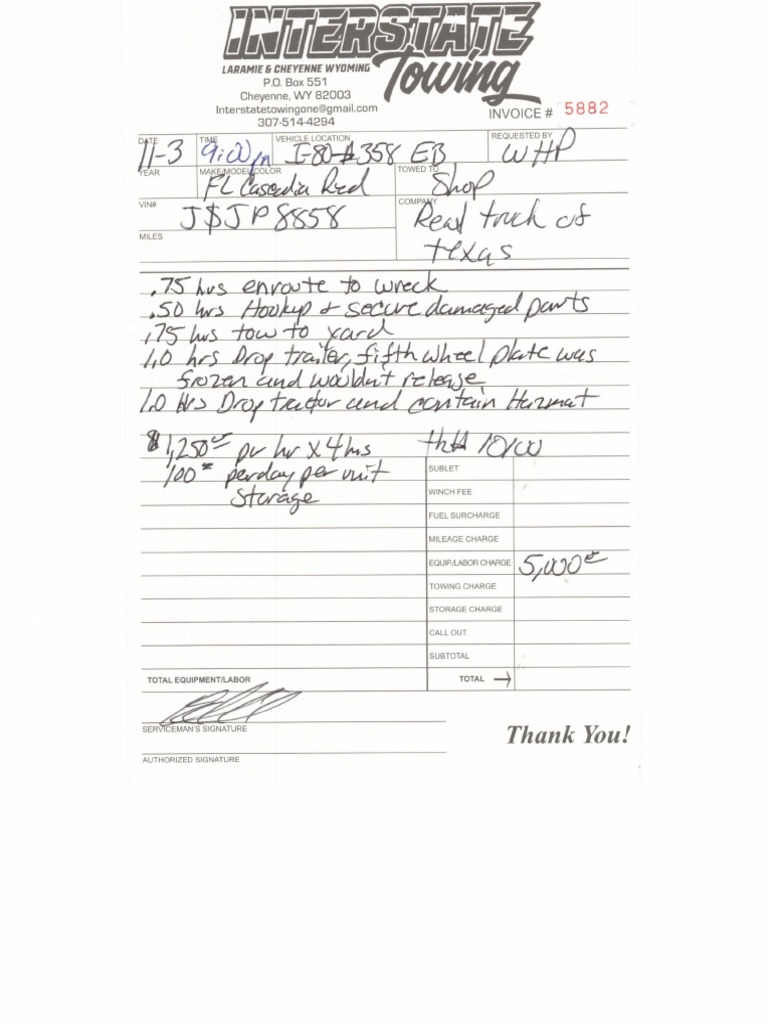 INTERSTATE
Towing
LARAMIE & CHEYENNE WYOMING
P.O. Box 551
Cheyenne, WY 82003
Interstatetowingone@gmail.com
307-514-4294
INVOICE # 5882
DATE 11-3 TIME 9:00 VEHICLE LOCATION I-80 358 EB REQUESTED BY WHP
YEAR MAKE/MODEL/COLOR FL Cascadia Red TOWED TO Shop
VIN# J$JP8858 COMPANY Real truck of
MILES texas
.75 hrs enroute to wreck
.50 hrs Hookup & secure damaged parts
.75 hrs tow to yard
1.0 hrs Drop trailer, fifth wheel plate was
frozen and wouldn't release
1.0 hrs Drop tractor and contain Hazmat
$1,250 pr hr x 4 hrs
100 per day per unit
Storage
SUBLET
WINCH FEE
FUEL SURCHARGE
MILEAGE CHARGE
EQUIP/LABOR CHARGE 5,000
TOWING CHARGE
STORAGE CHARGE
CALL OUT
SUBTOTAL
TOTAL EQUIPMENT/LABOR TOTAL →
SERVICEMAN'S SIGNATURE
Thank You!
AUTHORIZED SIGNATURE